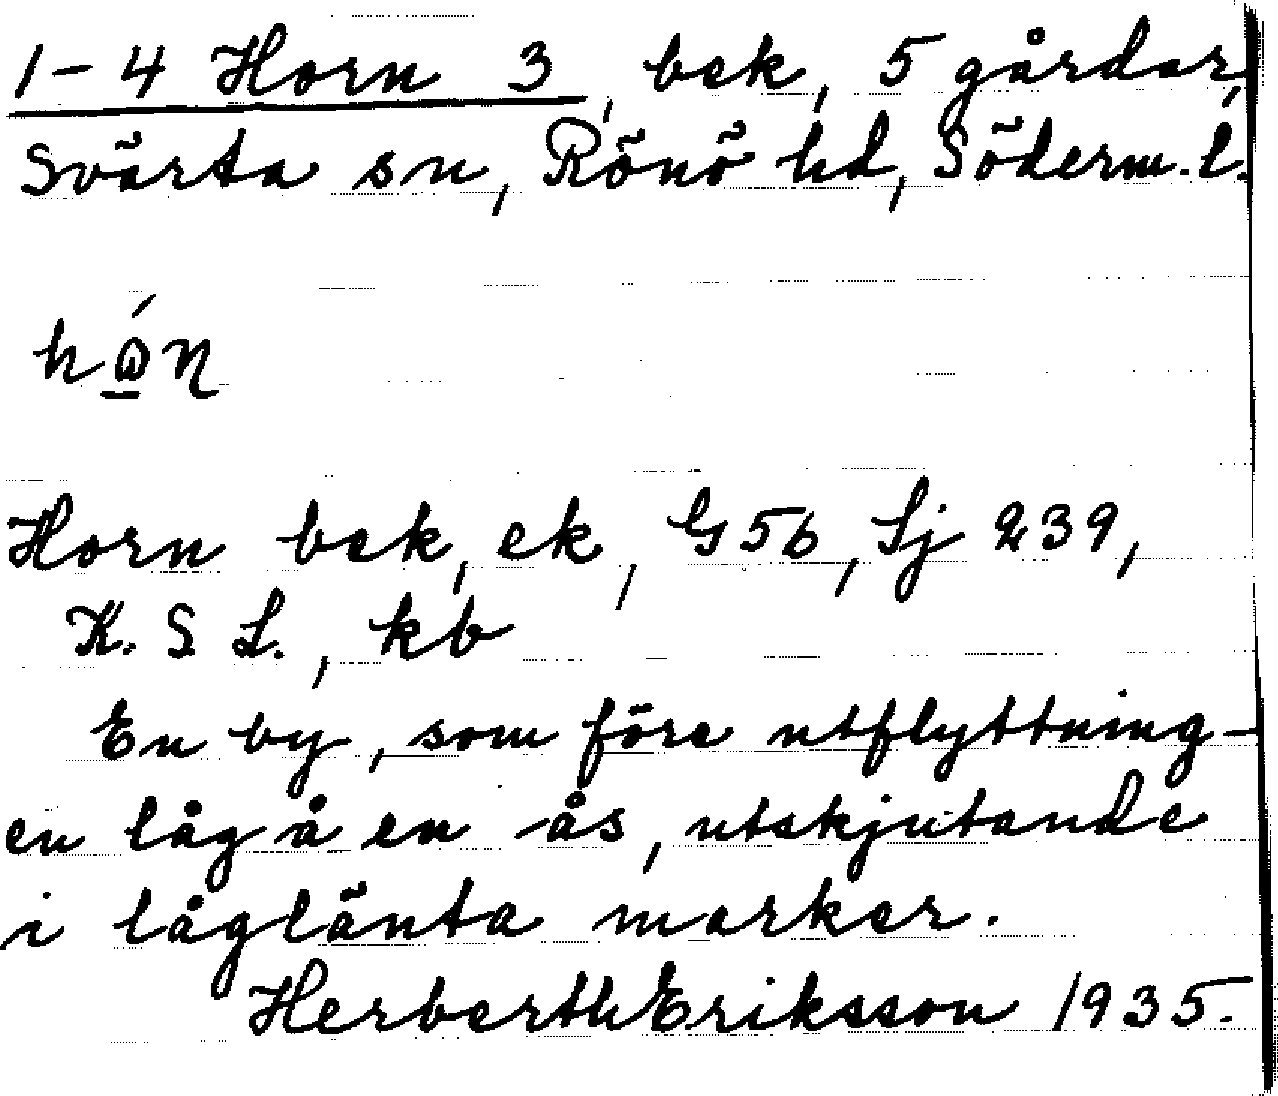 1-4 Horn 3, bek, 5 gårdar,
Svärta sn, Rönö hd, Söderm. l.
Horn bek, ek, G56, Sj 239,
K. S L., kb
En by, som före utflyttning-
en låg å en ås, utskjutande
i låglänta marker.
Herberth Eriksson 1935.